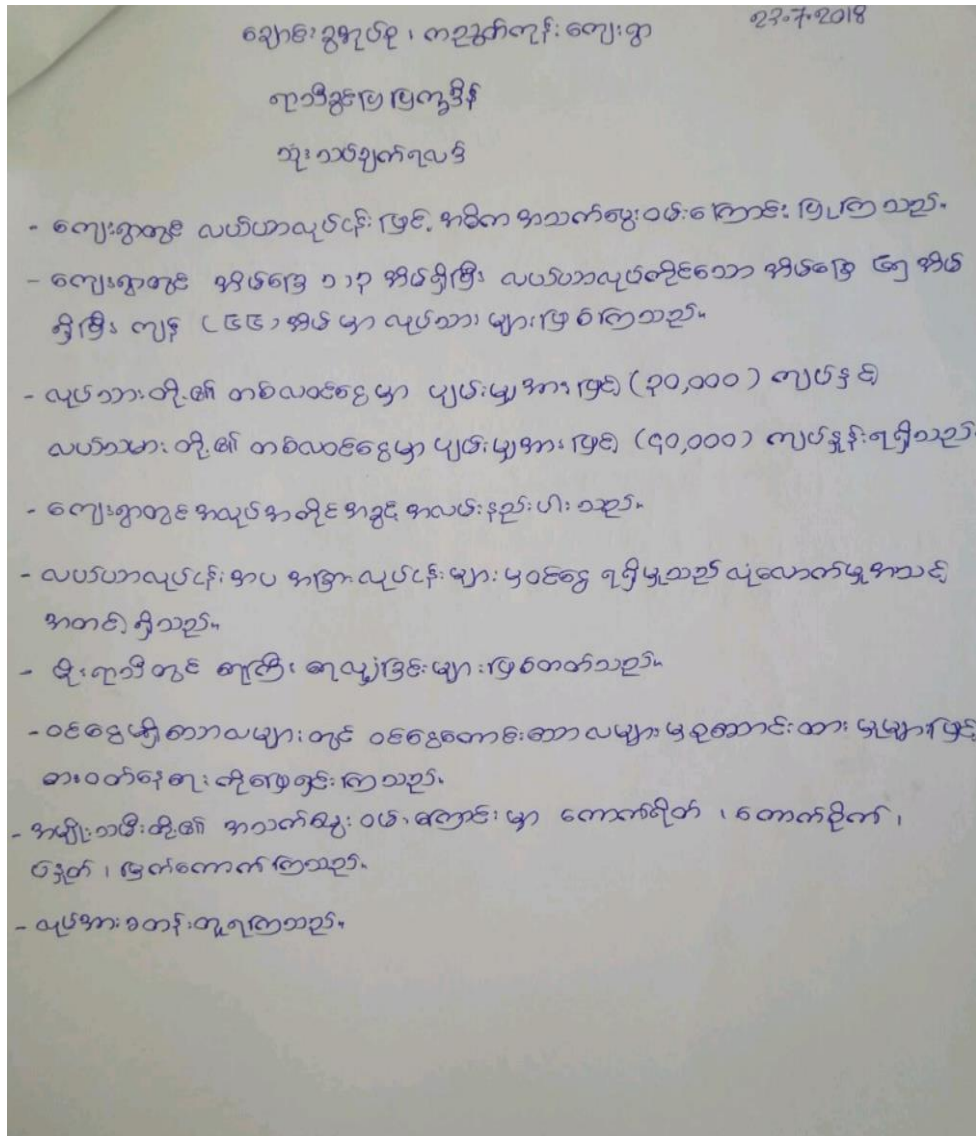 23.7.2018
ချောင်းခွအုပ်စု၊ ကညွတ်ကုန်းကျေးရွာ
ရာသီခွင်ပြ ပြက္ခဒိန်
သုံးသပ်ချက်ရလဒ်
- ကျေးရွာတွင် လယ်ယာလုပ်ငန်းဖြင့် အဓိက အသက်မွေးဝမ်းကြောင်း ပြုကြသည်။
- ကျေးရွာတွင် အိမ်ခြေ ၁၁၃ အိမ်ရှိပြီး လယ်ယာလုပ်ကိုင်သော အိမ်ခြေ ၆၅ အိမ်
ရှိပြီး ကျန် (၆၆) အိမ်မှာ လုပ်သားများဖြစ်ကြသည်။
- လုပ်သားတို့၏ တစ်လဝင်ငွေမှာ ပျမ်းမျှအားဖြင့် (၃၀,၀၀၀) ကျပ်နှင့်
လယ်သမားတို့၏ တစ်လဝင်ငွေမှာ ပျမ်းမျှအားဖြင့် (၄၀,၀၀၀) ကျပ်နှုန်းရရှိသည်
- ကျေးရွာတွင် အလုပ်အကိုင်အခွင့် အလမ်းနည်းပါးသည်။
- လယ်ယာလုပ်ငန်းအပ အခြားလုပ်ငန်းများမှဝင်ငွေ ရရှိမှုသည် လုံလောက်မှုအသင့်
အတင့်ရှိသည်။
- မိုးရာသီတွင် ရေကြီး ရေလျှံခြင်းများဖြစ်တတ်သည်။
- ဝင်ငွေမရှိသောလများတွင် ဝင်ငွေကောင်းသောလများမှ စုဆောင်းထားမှုများဖြင့်
စားဝတ်နေရေးကိုဖြေရှင်းကြသည်။
- အမျိုးသမီးတို့၏ အသက်မွေးဝမ်းကြောင်းမှာ ကောက်ရိတ်၊ ကောက်စိုက်၊
ပဲနှုတ်၊ မြက်ကောက်ကြသည်။
- လုပ်အားခတန်းတူရကြသည်။